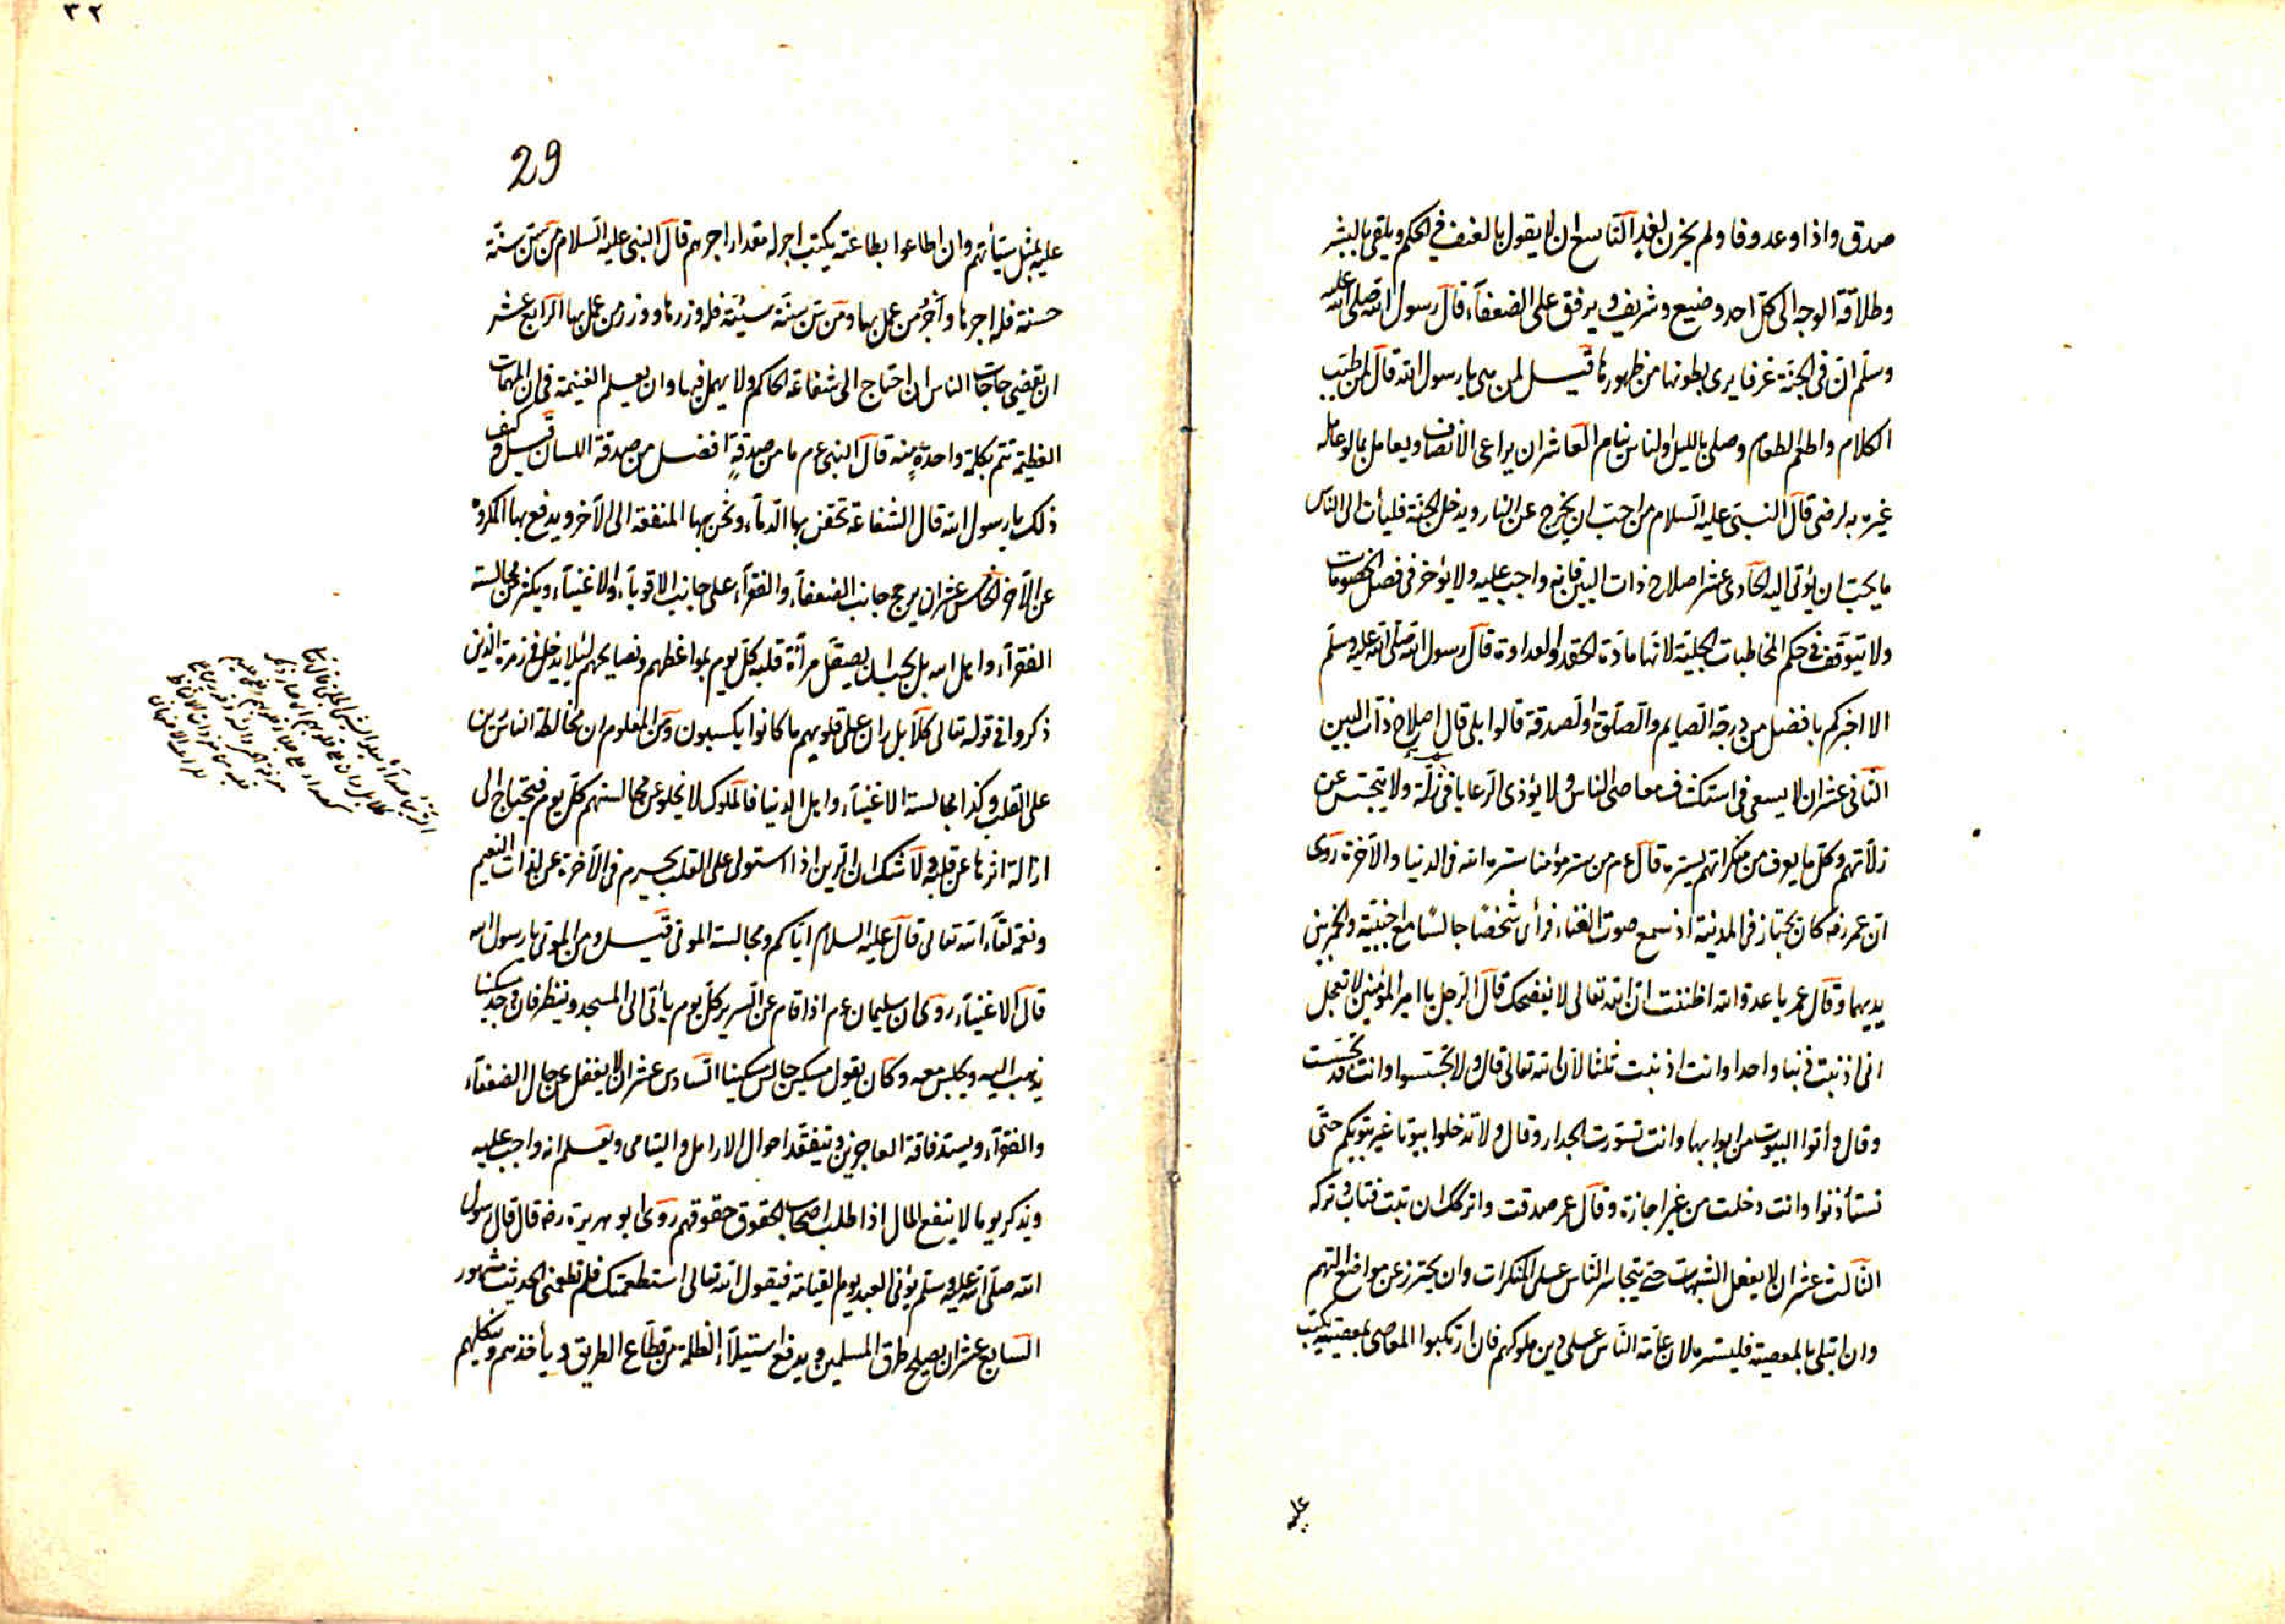 صدق واذا وعد وفا ولم يحزن لغد التاسع ان لا يقول بالعنف في الحكم ويلقى بالبشر
وطلاقة الوجه الى كل احد وضيع وشريف ويرفق على الضعفاء قال رسول الله صلى الله عليه
وسلم ان في الجنة غرفا يرى بطونها من ظهورها قيل لمن هى يا رسول الله قال لمن طيب
الكلام واطعم الطعام وصلى بالليل والناس نيام العاشر ان يراعى الانصاف ويعامل بما لو عامله
غيره به لرضى قال النبى عليه السلام من احب ان يخرج عن النار ويدخل الجنة فليأت الى الناس
ما يحب ان يؤتى اليه الحادى عشر اصلاح ذات البين فانه واجب عليه ولا يؤخر فى فصل الخصومات
ولا يتوقف فى حكم المخاطبات الجلية لانها مادة الحقد والعداوة قال رسول الله صلى الله عليه وسلم
الا اخبركم بافضل من درجة الصيام والصلوة والصدقة قالوا بلى قال اصلاح ذات البين
الثانى عشر ان لا يسعى فى استكشاف معاصى الناس ولا يؤذى الرعايا فى زلة ولا يتجسس عن
زلاتهم وكل ما يعرف من منكراتهم يستره قال عم من ستر مؤمنا ستره الله فى الدنيا والآخرة روى
ان عمر رضه كان يجتاز فى المدينة اذ سمع صوت الغناء فرأى شخصا جالسا مع اجنبية والخمر بين
يديهما وقال عمر يا عدو الله اظننت ان الله تعالى لا يفضحك قال الرجل يا امير المؤمنين لا تعجل
انى اذنبت ذنبا واحدا وانت اذنبت ثلثا لان الله تعالى قال ولا تجسسوا وانت قد تجسست
وقال وأتوا البيوت من ابوابها وانت تسورت الجدار وقال ولا تدخلوا بيوتا غير بيوتكم حتى
تستأذنوا وانت دخلت من غير اجازة وقال عمر صدقت واتركك ان تبت فتاب وتركه
الثالث عشر ان لا يفعل الشبهات حتى يتجاسر الناس على المنكرات وان يحترز عن مواضع التهم
وان ابتلى بالمعصية فليستره لان عامة الناس على دين ملوكهم فان ارتكبوا المعاصى بمعصيته يكتب
عليه
٣٢
29
عليه بمثل سيأتهم وان اطاعوا بطاعته يكتب اجر له مقدار اجرهم قال النبى عليه السلام من سن سنة
حسنة فله اجرها واجر من عمل بها ومن سن سنة سيئة فله وزرها ووزر من عمل بها الرابع عشر
ان يقضى حاجات الناس ان احتاج الى شفاعة الحاكم ولا يهمل فيها وان يعلم الغنيمة فى ان المهمات
العظيمة تتم بكلمة واحدة منه قال النبى عم ما من صدقة افضل من صدقة اللسان قيل وكيف
ذلك يا رسول الله قال الشفاعة تحقن بها الدماء وتجر بها المنفعة الى الآخر ويدفع بها المكروه
عن الآخر الخامس عشر ان يرجح جانب الضعفاء والفقراء على جانب الاقوياء والاغنياء ويكثر مجالسة
الفقراء واهل الله بل يجب ان يصقل مرأة قلبه كل يوم بمواعظهم ونصايحهم لئلا يدخل فى زمرة الذين
ذكروا فى قوله تعالى كلا بل ران على قلوبهم ما كانوا يكسبون ومن المعلوم ان مخالطة الناس رين
على القلب وكذا مجالسة الاغنياء واهل الدنيا فالملوك لا يخلو عن مجالستهم كل يوم فيحتاج الى
ازالة اثرها عن قلبه ولا شك ان الرين اذا استولى على القلب يحرم فى الآخرة عن لذات النعيم
ونعمة لقاء الله تعالى قال عليه السلام اياكم ومجالسة الموتى قيل ومن الموتى يا رسول الله
قال الاغنياء روى ان سليمان عم اذا قام عن السرير كل يوم يأتى الى المسجد وينظر فان وجد مسكينا
يذهب اليه ويجلس معه وكان يقول مسكين جالس مسكينا السادس عشر ان لا يغفل عن حال الضعفاء
والفقراء ويسد فاقة العاجزين ويتفقد احوال الارامل واليتامى ويعلم انه واجب عليه
ويذكر يوما لا ينفع المال اذا طلب اصحاب الحقوق حقوقهم روى ابو هريرة رضه قال قال رسول
الله صلى الله عليه وسلم يؤتى العبد يوم القيامة فيقول الله تعالى استطعمتك فلم تطعمنى الحديث مشهور
السابع عشر ان يصلح طرق المسلمين ويدفع استيلاء الظلمة من قطاع الطريق ويأخذهم وينكلهم